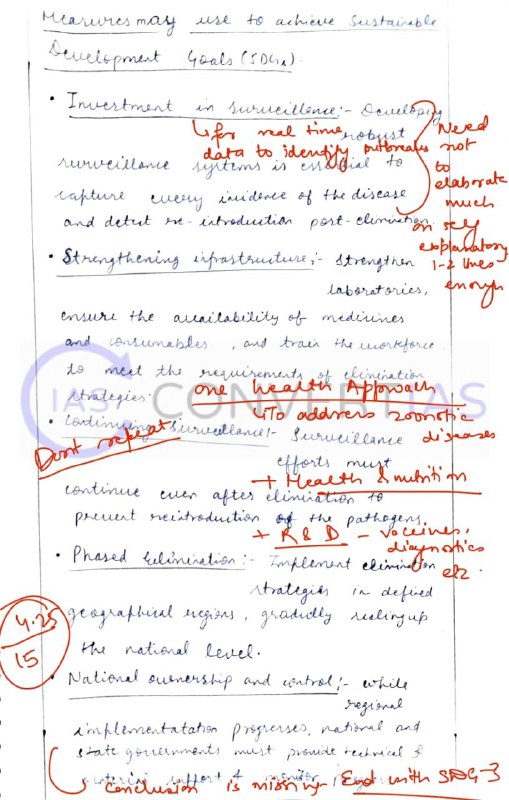 Measures may use to achieve Sustainable
Development Goals (SDGs).
• Investment in surveillance:- Developing
↳ for real time robust
data to identify outbreaks
surveillance systems is essential to
capture every incidence of the disease
and detect re-introduction post-elimination.
Need
not
to
elaborate
much
on self
explanatory
1-2 lines
enough
• Strengthening infrastructure:- Strengthen
laboratories,
ensure the availability of medicines
and consumables, and train the workforce
to meet the requirements of elimination
strategies.
one health Approach
↳ To address zoonotic
diseases
IAS CONVERTIAS
• Continuing surveillance:- Surveillance
Dont repeat
efforts must
+ Health & nutrition
continue even after elimination to
prevent reintroduction of the pathogens
+ R & D - vaccines,
diagnostics
etc.
• Phased Elimination:- Implement elimination
strategies in defined
geographical regions, gradually scaling up
the national level.
4.25
15
• National ownership and control:- while
regional
implementatation progresses, national and
state governments must provide technical &
support & monitor
↳ Conclusion is missing End with SDG-3